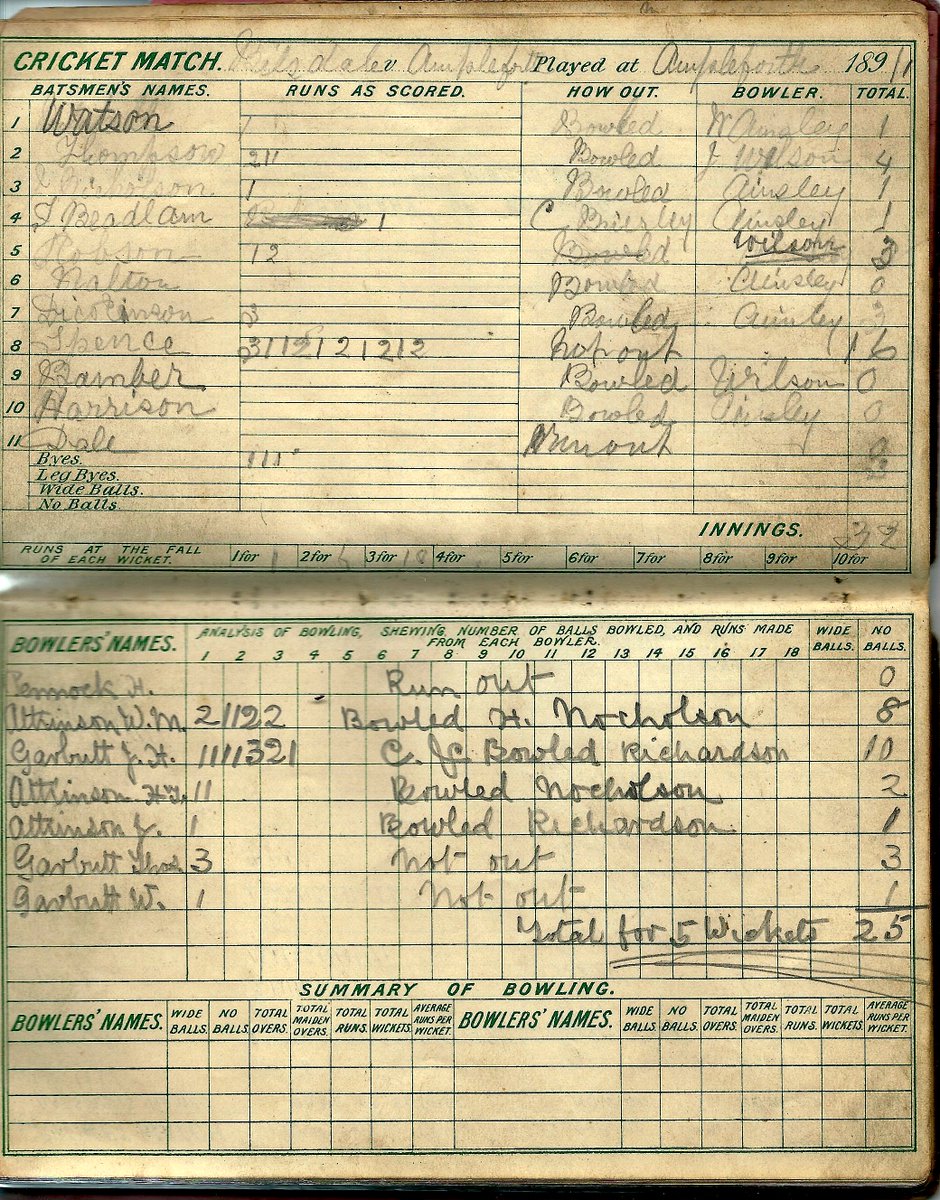 CRICKET MATCH. Bilsdale v Ampleforth Played at Ampleforth 1891
BATSMEN'S NAMES. RUNS AS SCORED. HOW OUT. BOWLER. TOTAL.
1 Watson 1 Bowled W Ainsley 1
2 Thompson 211 Bowled J. Wilson 4
3 Nicholson 1 Bowled Ainsley 1
4 Beadlam 1 C Brierley Ainsley 1
5 Robson 12 Bowled Wilson 3
6 Nalton Bowled Ainsley 0
7 Dickinson 3 Bowled Ainsley 3
8 Spence 3112121212 Not out 16
9 Bamber Bowled Wilson 0
10 Harrison Bowled Ainsley 0
11 Dale Run out 0
Byes. 111
Leg Byes.
Wide Balls.
No Balls.
INNINGS. 32
RUNS AT THE FALL OF EACH WICKET. 1 for 1 2 for 3 for 4 for 5 for 6 for 7 for 8 for 9 for 10 for
BOWLERS' NAMES. ANALYSIS OF BOWLING, SHEWING NUMBER OF BALLS BOWLED, AND RUNS MADE FROM EACH BOWLER. WIDE BALLS. NO BALLS.
1 2 3 4 5 6 7 8 9 10 11 12 13 14 15 16 17 18
Pennock H. Run out 0
Attkinson W.M. 21122 Bowled H. Nocholson 8
Garbutt J. H. 1111321 C. Bowled Richardson 10
Attkinson 11 Bowled Nocholson 2
Attkinson J. 1 Bowled Richardson 1
Garbutt Thos. 3 Not out 3
Garbutt W. 1 Not out 1
Total for 5 Wickets 25
SUMMARY OF BOWLING.
BOWLERS' NAMES. WIDE BALLS. NO BALLS. TOTAL OVERS. TOTAL MAIDEN OVERS. TOTAL RUNS. TOTAL WICKETS. AVERAGE RUNS PER WICKET. BOWLERS' NAMES. WIDE BALLS. NO BALLS. TOTAL OVERS. TOTAL MAIDEN OVERS. TOTAL RUNS. TOTAL WICKETS. AVERAGE RUNS PER WICKET.